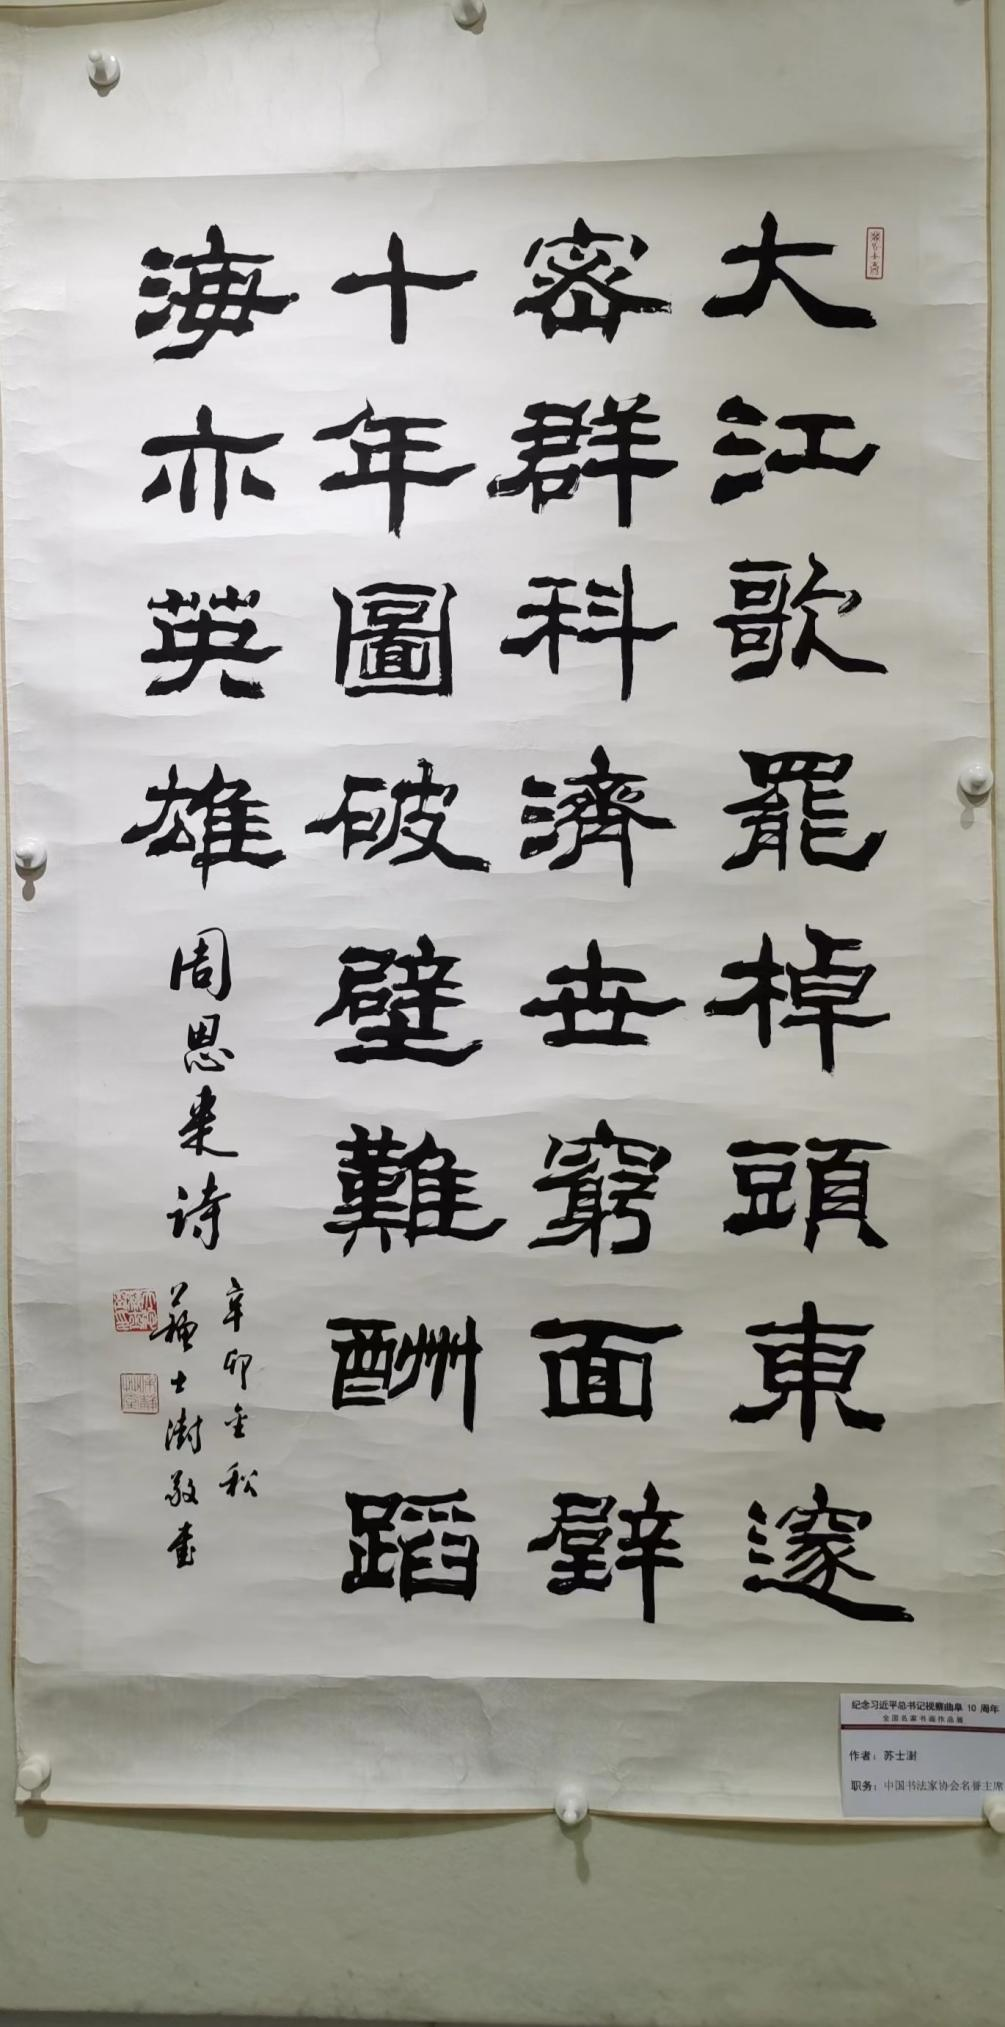 大江歌罷棹頭東邃
密群科濟世窮面壁
十年圖破壁難酬蹈
海亦英雄
周恩来诗
辛卯金秋
蘇士澍敬書
纪念习近平总书记视察曲阜 10 周年
全国名家书画作品展
作者：苏士澍
职务：中国书法家协会名誉主席